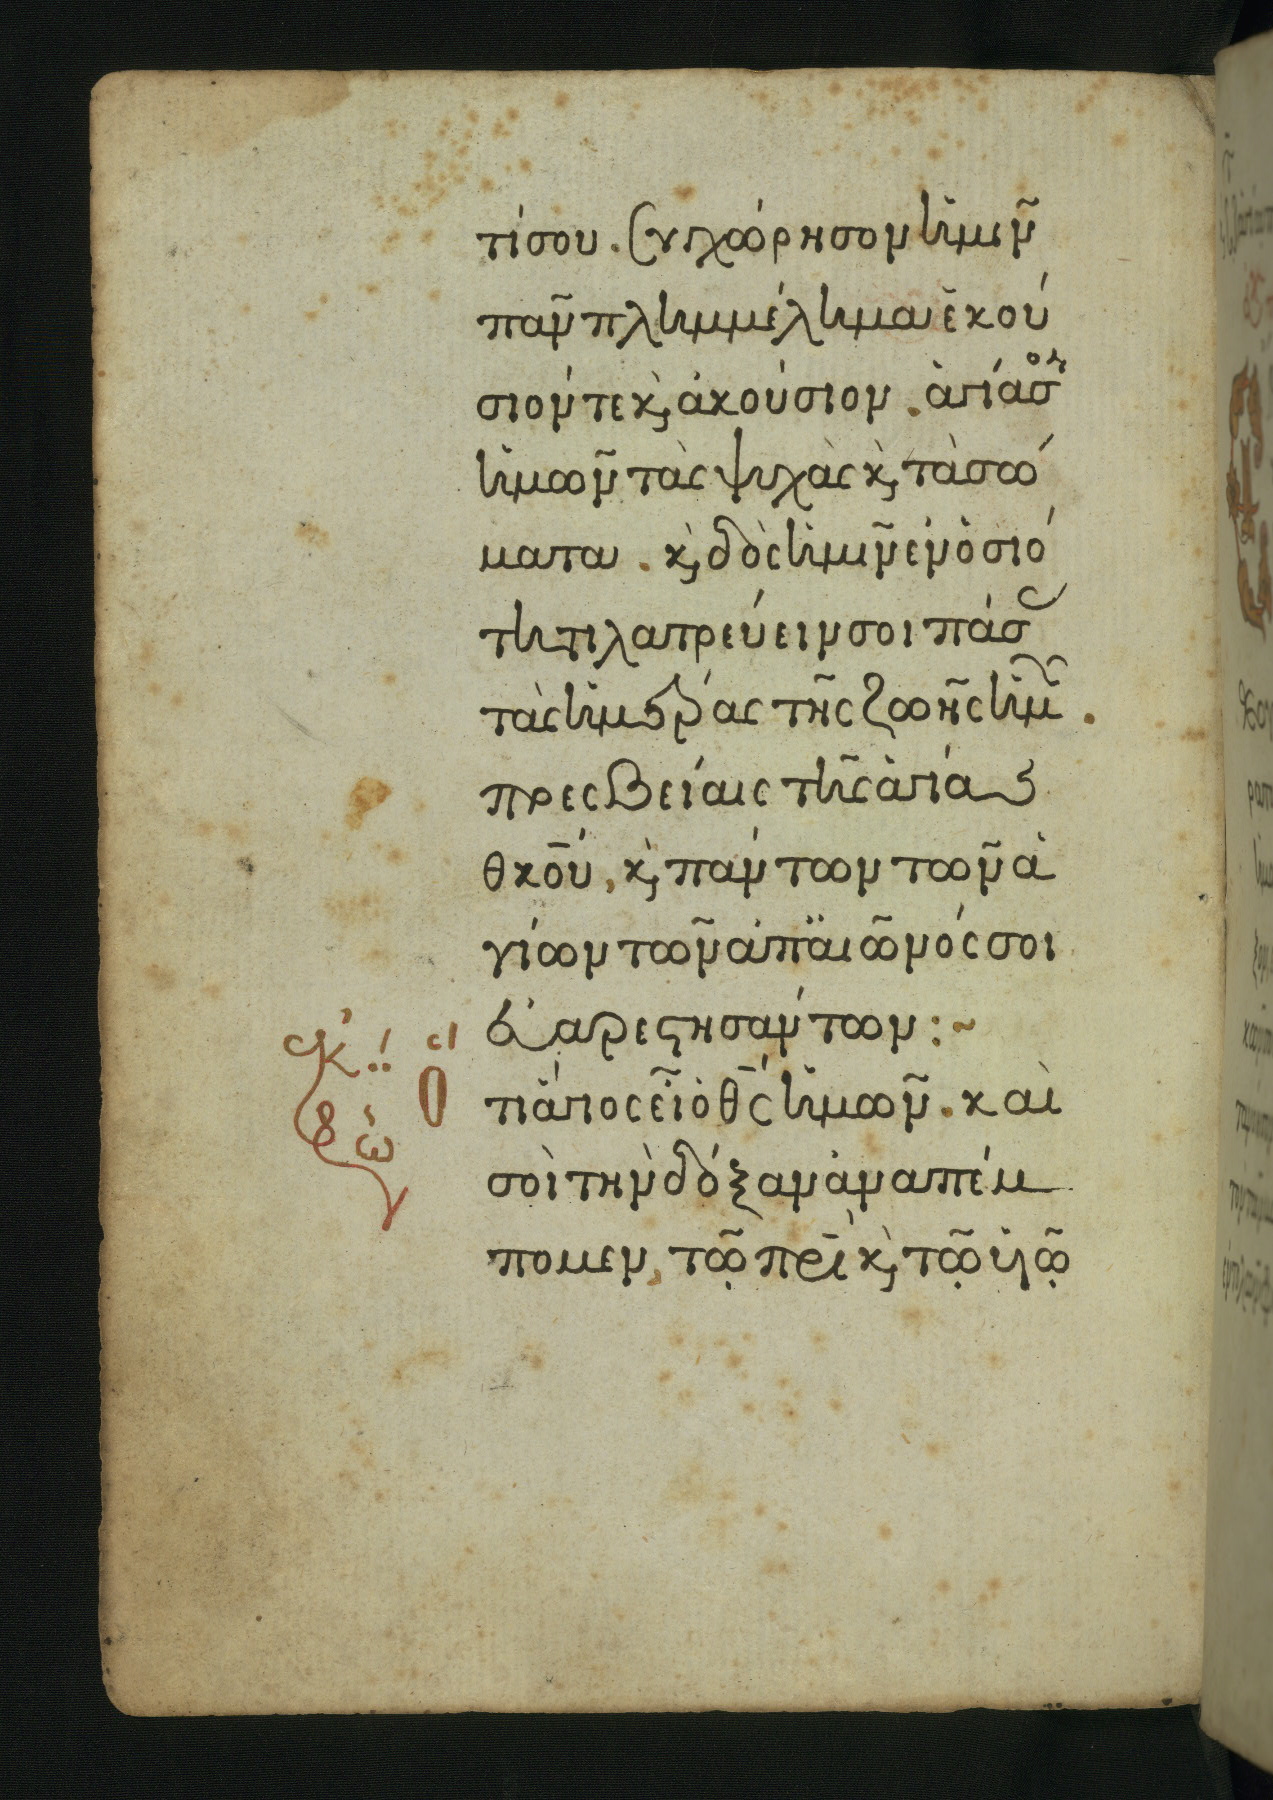 τίσου. Συγχώρησον ἡμῖν
πᾶν πλημμέλημα ἑκού
σιόν τε κ, ἀκούσιον. ἁγίασον
ἡμῶν τὰς ψυχὰς κ, τὰ σώ
ματα. κ, δὸς ἡμῖν ἐν ὁσιό
τητι λατρεύειν σοι πάσας
τὰς ἡμέρας τῆς ζωῆς ἡμῶν.
πρεσβείαις τῆς ἁγίας
θκου, κ, πάντων τῶν ἁ
γίων τῶν ἀπ αἰῶνός σοι
εὐαρεστησάντων:~
Ὅτι ἅγιος εἶ ὁ θς ἡμῶν. καὶ
σοὶ τὴν δόξαν ἀναπέμ
πομεν, τῷ πρι κ, τῷ υἱῷ